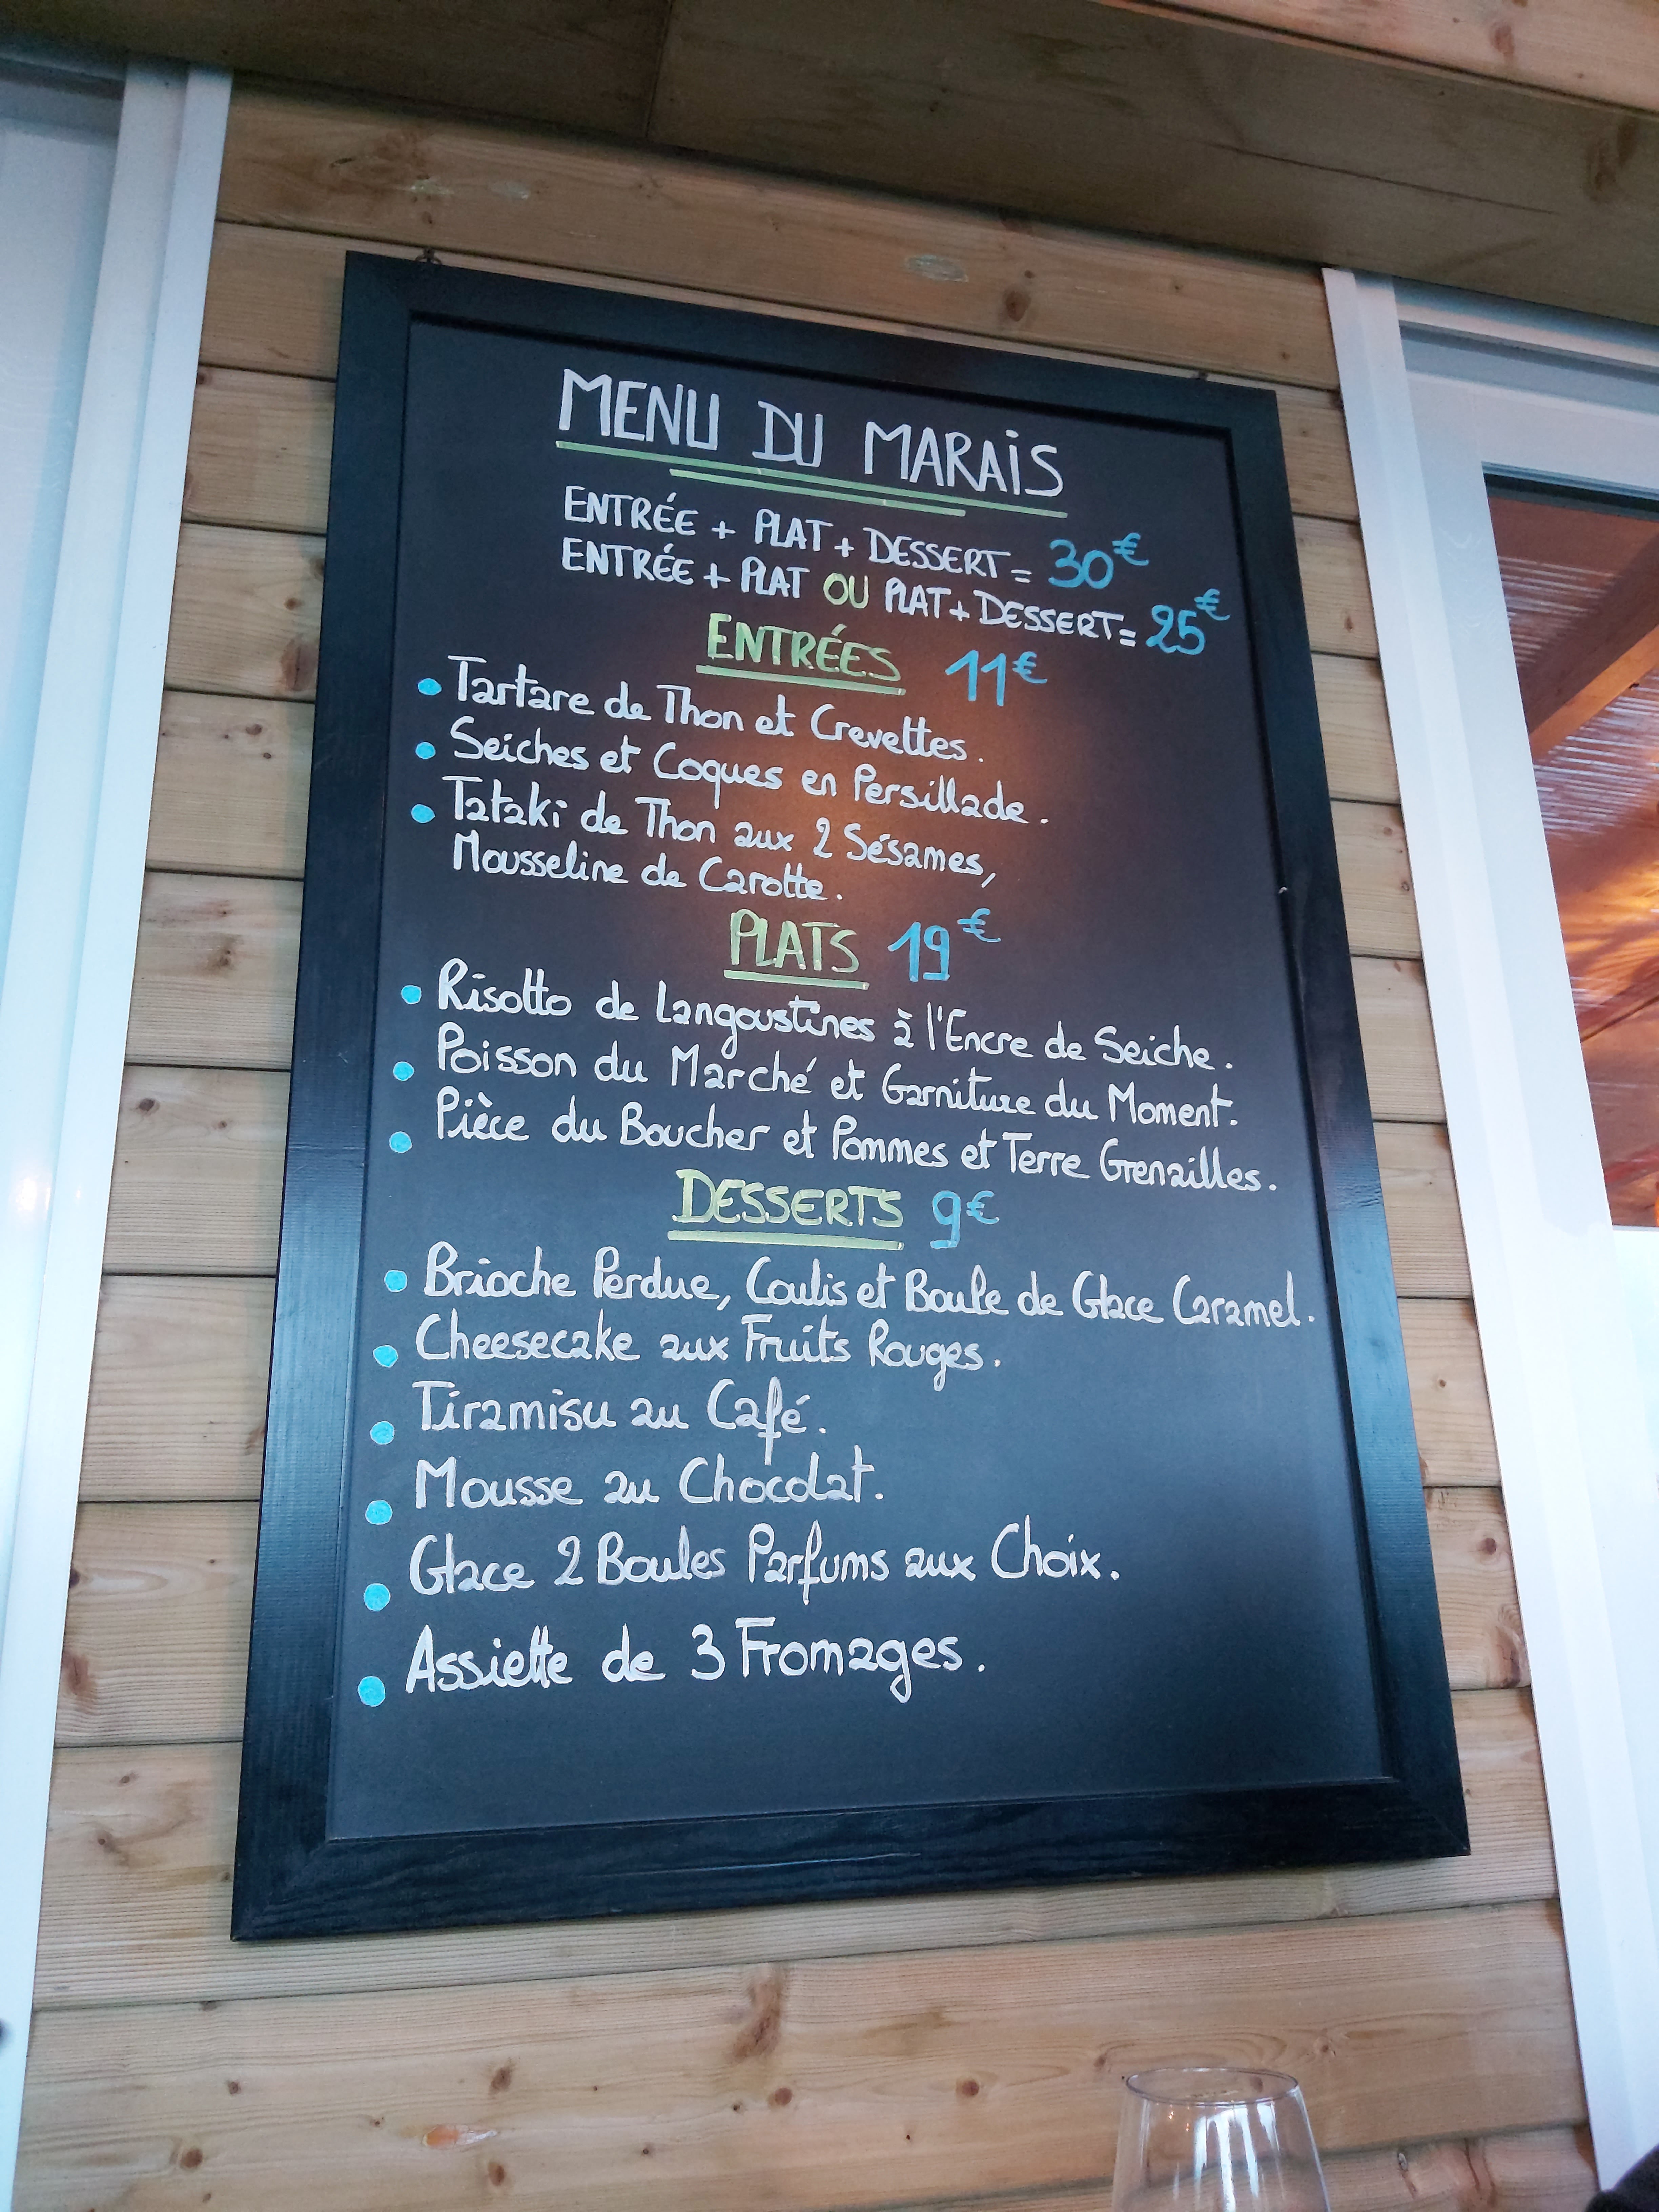 MENU DU MARAIS
ENTRÉE + PLAT + DESSERT = 30€
ENTRÉE + PLAT OU PLAT + DESSERT = 25€
ENTRÉES 11€
• Tartare de Thon et Crevettes.
• Seiches et Coques en Persillade.
• Tataki de Thon aux 2 Sésames,
Mousseline de Carotte.
PLATS 19€
• Risotto de Langoustines à l'Encre de Seiche.
• Poisson du Marché et Garniture du Moment.
• Pièce du Boucher et Pommes et Terre Grenailles.
DESSERTS 9€
• Brioche Perdue, Coulis et Boule de Glace Caramel.
• Cheesecake aux Fruits Rouges.
• Tiramisu au Café.
• Mousse au Chocolat.
• Glace 2 Boules Parfums aux Choix.
• Assiette de 3 Fromages.